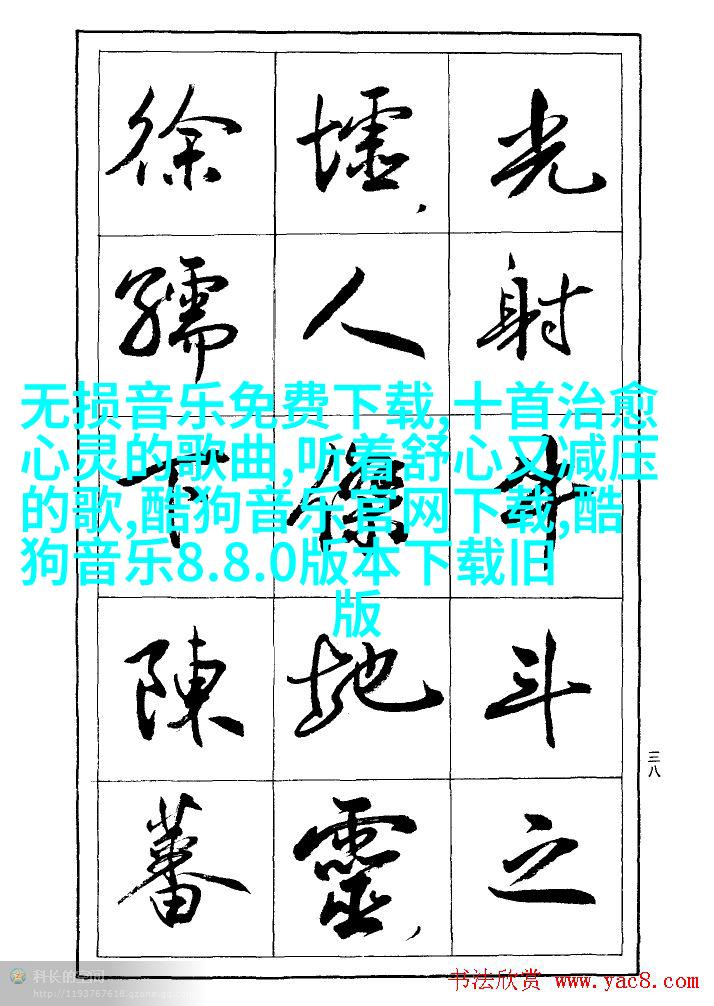 光射牛斗之
墟,人傑地靈,
徐孺下陳蕃
无损音乐免费下载,十首治愈
心灵的歌曲,听着舒心又减压
的歌,酷狗音乐官网下载,酷
狗音乐8.8.0版本下载旧
版
三八
科长的空间
http://1193767618.qzone.qq.com
书法欣赏 www.yac8.com